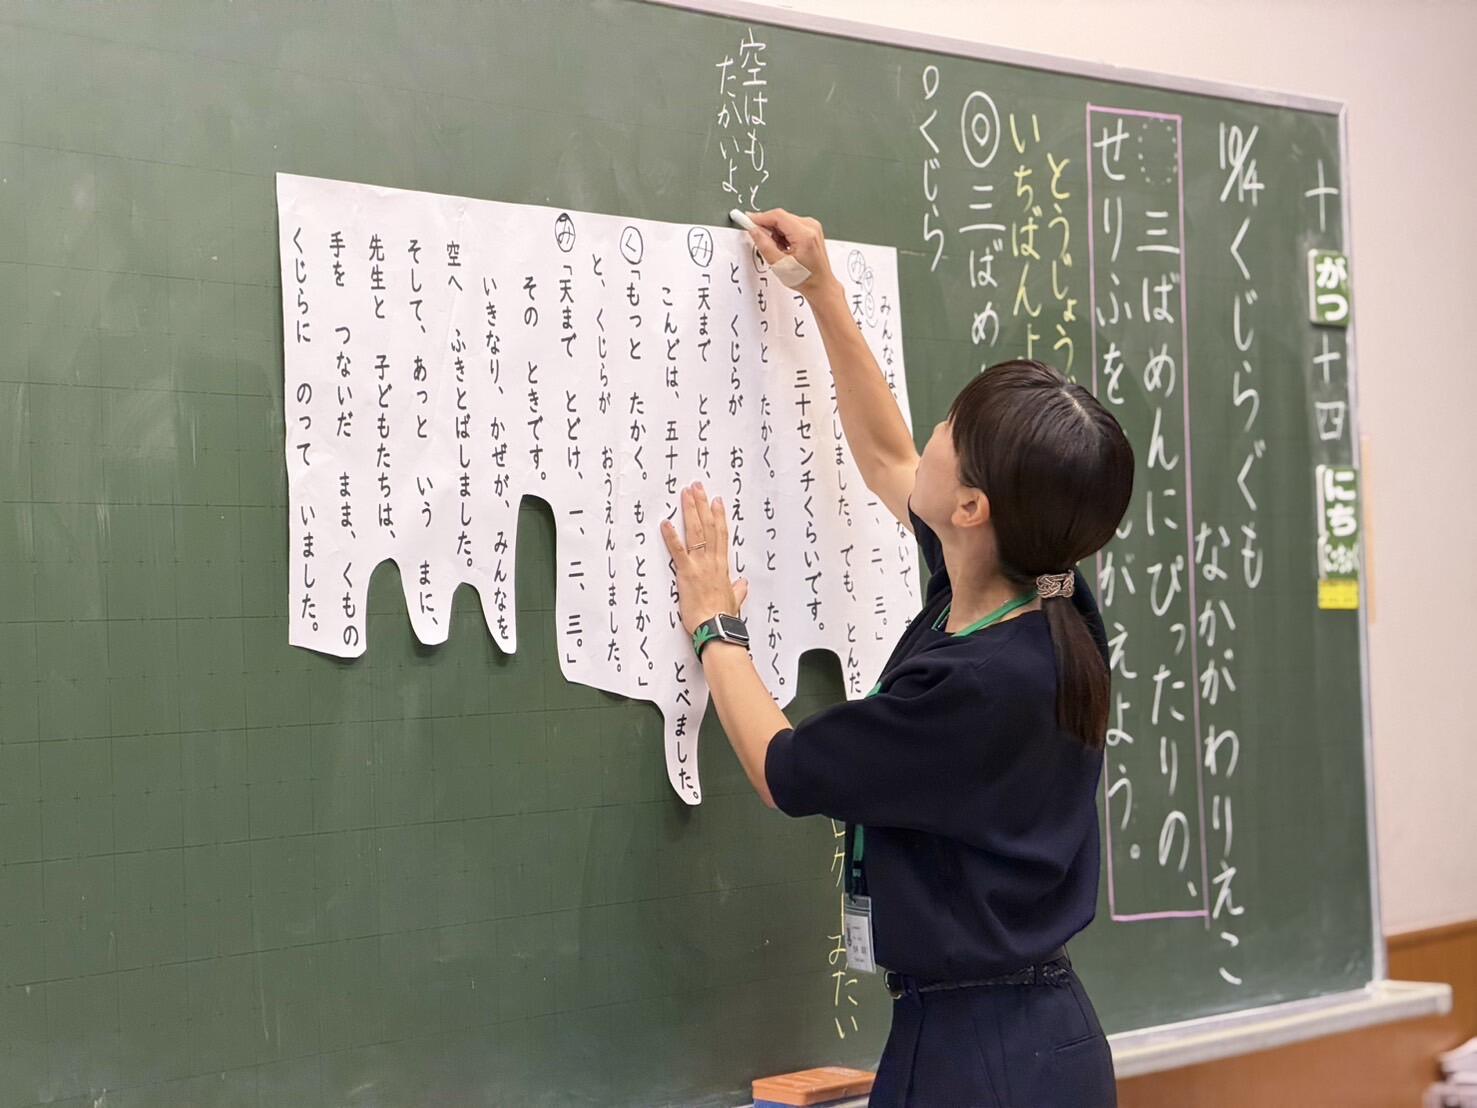 十がつ十四にち
10/14 くじらぐも
なかがわりえこ
三ばめんにぴったりの、
せりふを
がえよう。
とうじょう
いちばん
◎三ばめ
くじら
空はもっと
たかいよ。
みんなは
「天ま
しました。でも、とんだ
もっと 三十センチくらいです。
「もっと たかく。もっと たかく。
と、くじらが おうえんし
み「天まで とどけ、
こんどは、五十セン くらい とべました。
く「もっと たかく。もっとたかく。」
と、くじらが おうえんしました。
み「天まで とどけ、一、二、三。」
その ときです。
いきなり、かぜが、みんなを
空へ ふきとばしました。
そして、あっと いう まに、
先生と 子どもたちは、
手を つないだ まま、くもの
くじらに のって いました。
みたい